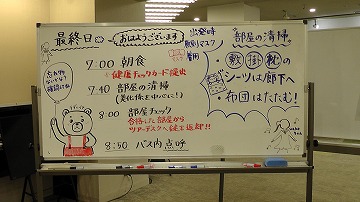 最終日
おはようございます
出発時
マスク
着用
7:00 朝食
健康チェックカード提出
7:40 部屋の清掃
(美化係を中心に!)
8:00 部屋チェック
合格した部屋から
ツアーデスクへ鍵を返却!!
8:50 バス内点呼
忘れ物
ないかな?
確認してね
部屋の清掃
・敷掛枕の
シーツは廊下へ
・布団はたたむ!